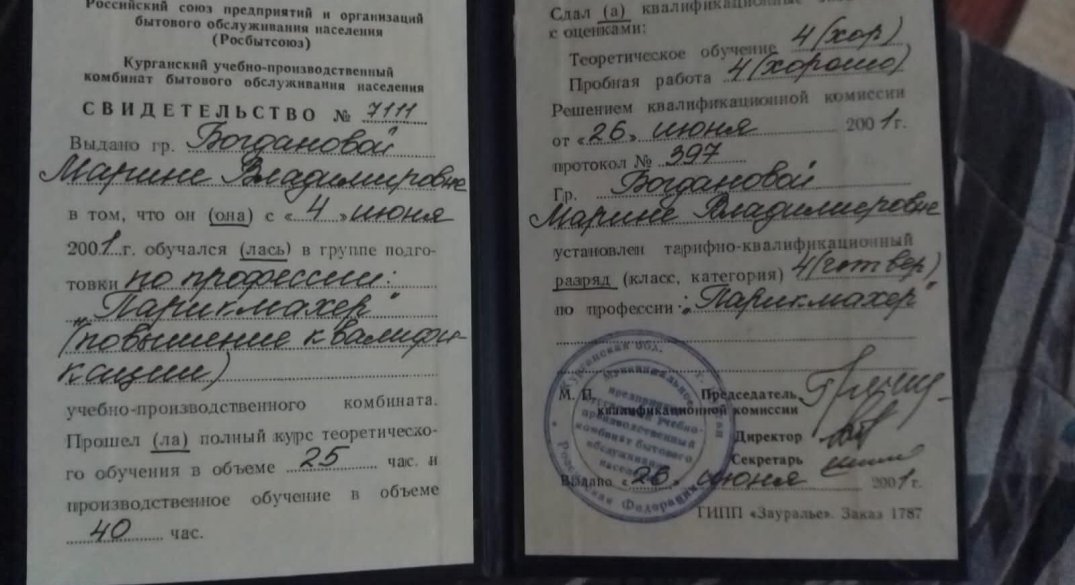 Российский союз предприятий и организаций
бытового обслуживания населения
(Росбытсоюз)
Курганский учебно-производственный
комбинат бытового обслуживания населения
СВИДЕТЕЛЬСТВО № 7111
Выдано гр. Богдановой
Марине Владимировне
в том, что он (она) с «4» июня
2001 г. обучался (лась) в группе подго-
товки по профессии:
„Парикмахер"
(повышение квалифи-
кации)
учебно-производственного комбината.
Прошел (ла) полный курс теоретическо-
го обучения в объеме 25 час. и
производственное обучение в объеме
40 час.
Сдал (а) квалификационные
с оценками:
Теоретическое обучение 4 (хор)
Пробная работа 4 (хорошо)
Решением квалификационной комиссии
от «26» июня 2001 г.
протокол № 397
Гр. Богдановой
Марине Владимировне
установлен тарифно-квалификационный
разряд (класс, категория) 4 (четвер)
по профессии: „Парикмахер"
М. П. Председатель
квалификационной комиссии
Директор
Секретарь
Выдано «26» июня 2001 г.
ГИПП «Зауралье». Заказ 1787
Курганская обл.
Российская Федерация
Муниципальное
предприятие
учебно-
производственный
комбинат бытового
обслуживания
населения